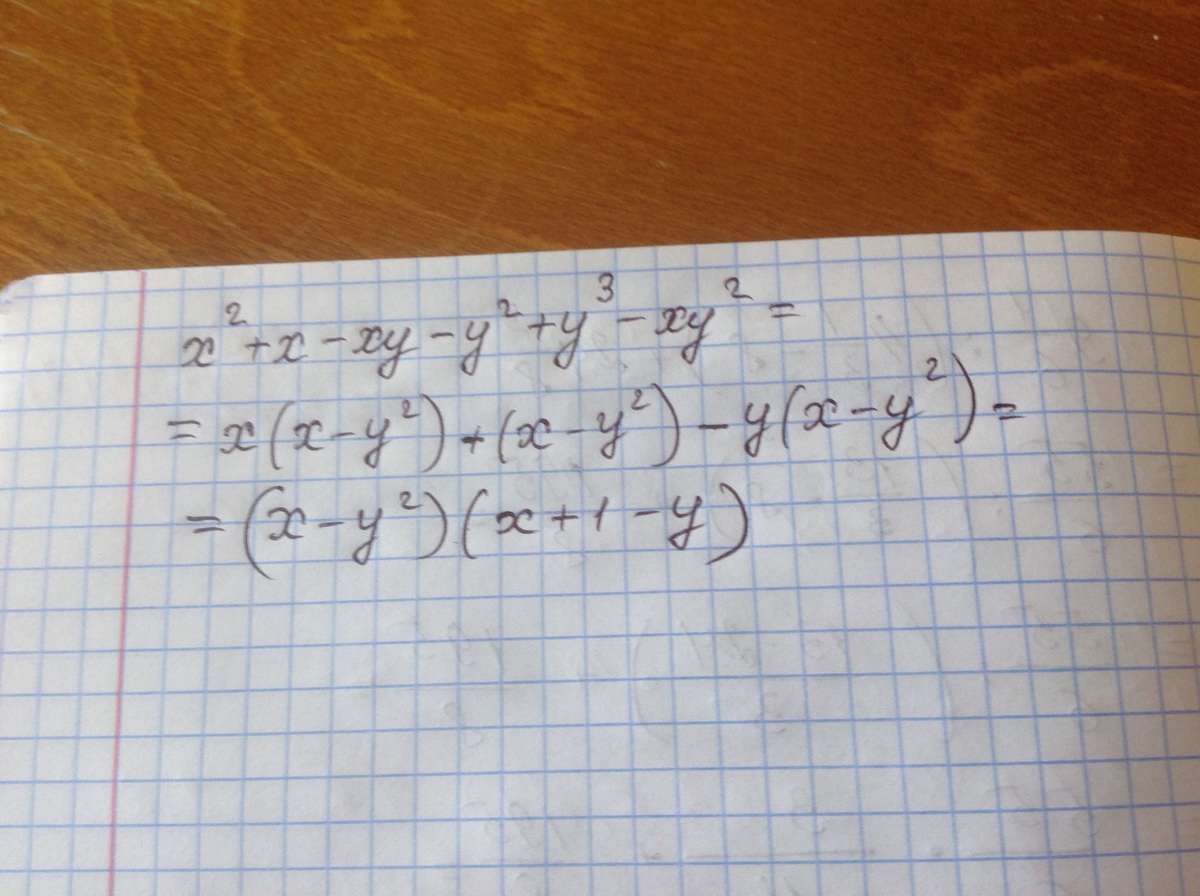 x² + x - xy - y² + y³ - xy² =
= x(x - y²) + (x - y²) - y(x - y²) =
= (x - y²)(x + 1 - y)